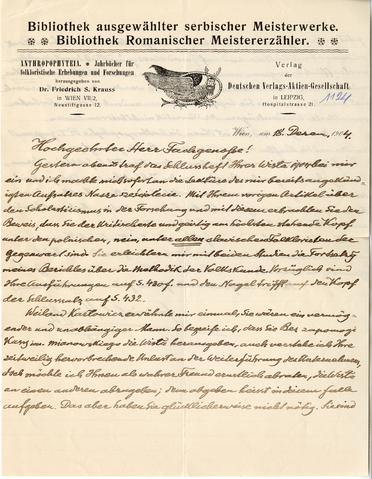 Bibliothek ausgewählter serbischer Meisterwerke.
Bibliothek Romanischer Meistererzähler.
ANTHROPOPHYTEIA. Jahrbücher für
folkloristische Erhebungen und Forschungen
herausgegeben von
Dr. Friedrich S. Krauss
in WIEN VII/2,
Neustiftgasse 12.
Verlag
der
Deutschen Verlags-Aktien-Gesellschaft
in LEIPZIG,
Hospitalstrasse 21.
1124
Wien, am 18. Dezem. 1904.
Hochgeehrter Herr Fachgenosse!
Gestern abend traf das Schlussheft Ihrer Wisła 1904 bei mir
ein und ich machte mich sofort an die Lectüre des mir bereits angekündigten
Aufsatzes Nasze. Mit Ihrem vorigen Artikel über
den Scholasticismus in der Forschung und mit diesem erbrachten Sie den
Beweis, dass Sie der kritischeste und geistig am höchsten stehende Kopf
unter den polnischen, nein, unter allen slavischen Folkloristen der
Gegenwart sind. Sie erleichtern mir mit beiden Studien die Fortsetzung
meines Berichtes über die Methodik der Volkskunde. Vorzüglich sind
Ihre Ausführungen auf S. 430f. und den Nagel trifft auf den Kopf
der Schlusssatz auf S. 432.
Weiland Karłowicz erwähnte mir einmal, Sie wären ein vermögender
und unabhängiger Mann. So begreife ich, dass Sie Bez zapomogi
Kasy im. Mianowskiego die Wisła herausgeben, auch verstehe ich Ihre
zeitweilig hervorbrechende Unlust an der Weiterführung des Unternehmens,
doch möchte ich Ihnen als wahrer Freund ernstlich abraten, die Wisła
an einen anderen abzugeben; denn abgeben heisst in diesem Falle
aufgeben. Das aber haben Sie glücklicherweise nicht nötig. Sie sind